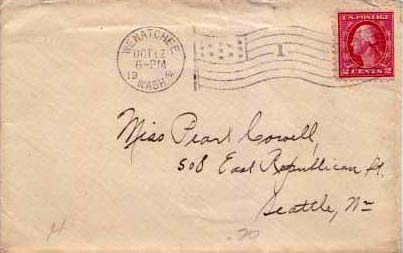 WENATCHEE
OCT 12
6-PM
19
WASH
1
U.S. POSTAGE
2 CENTS 2
Miss Pearl Cowell,
508 East Republican St.
Seattle, Wn
20